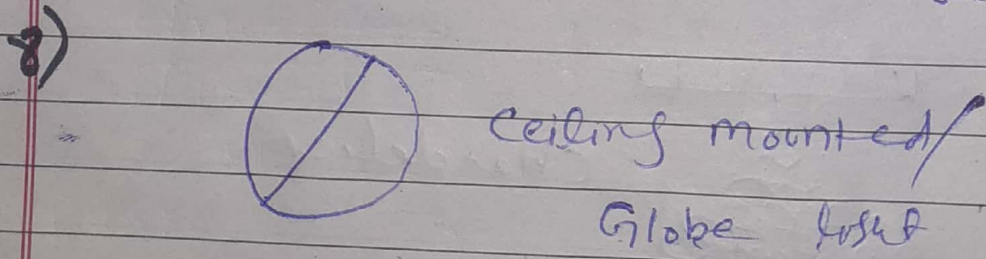 8)
Ceiling mounted/
Globe light